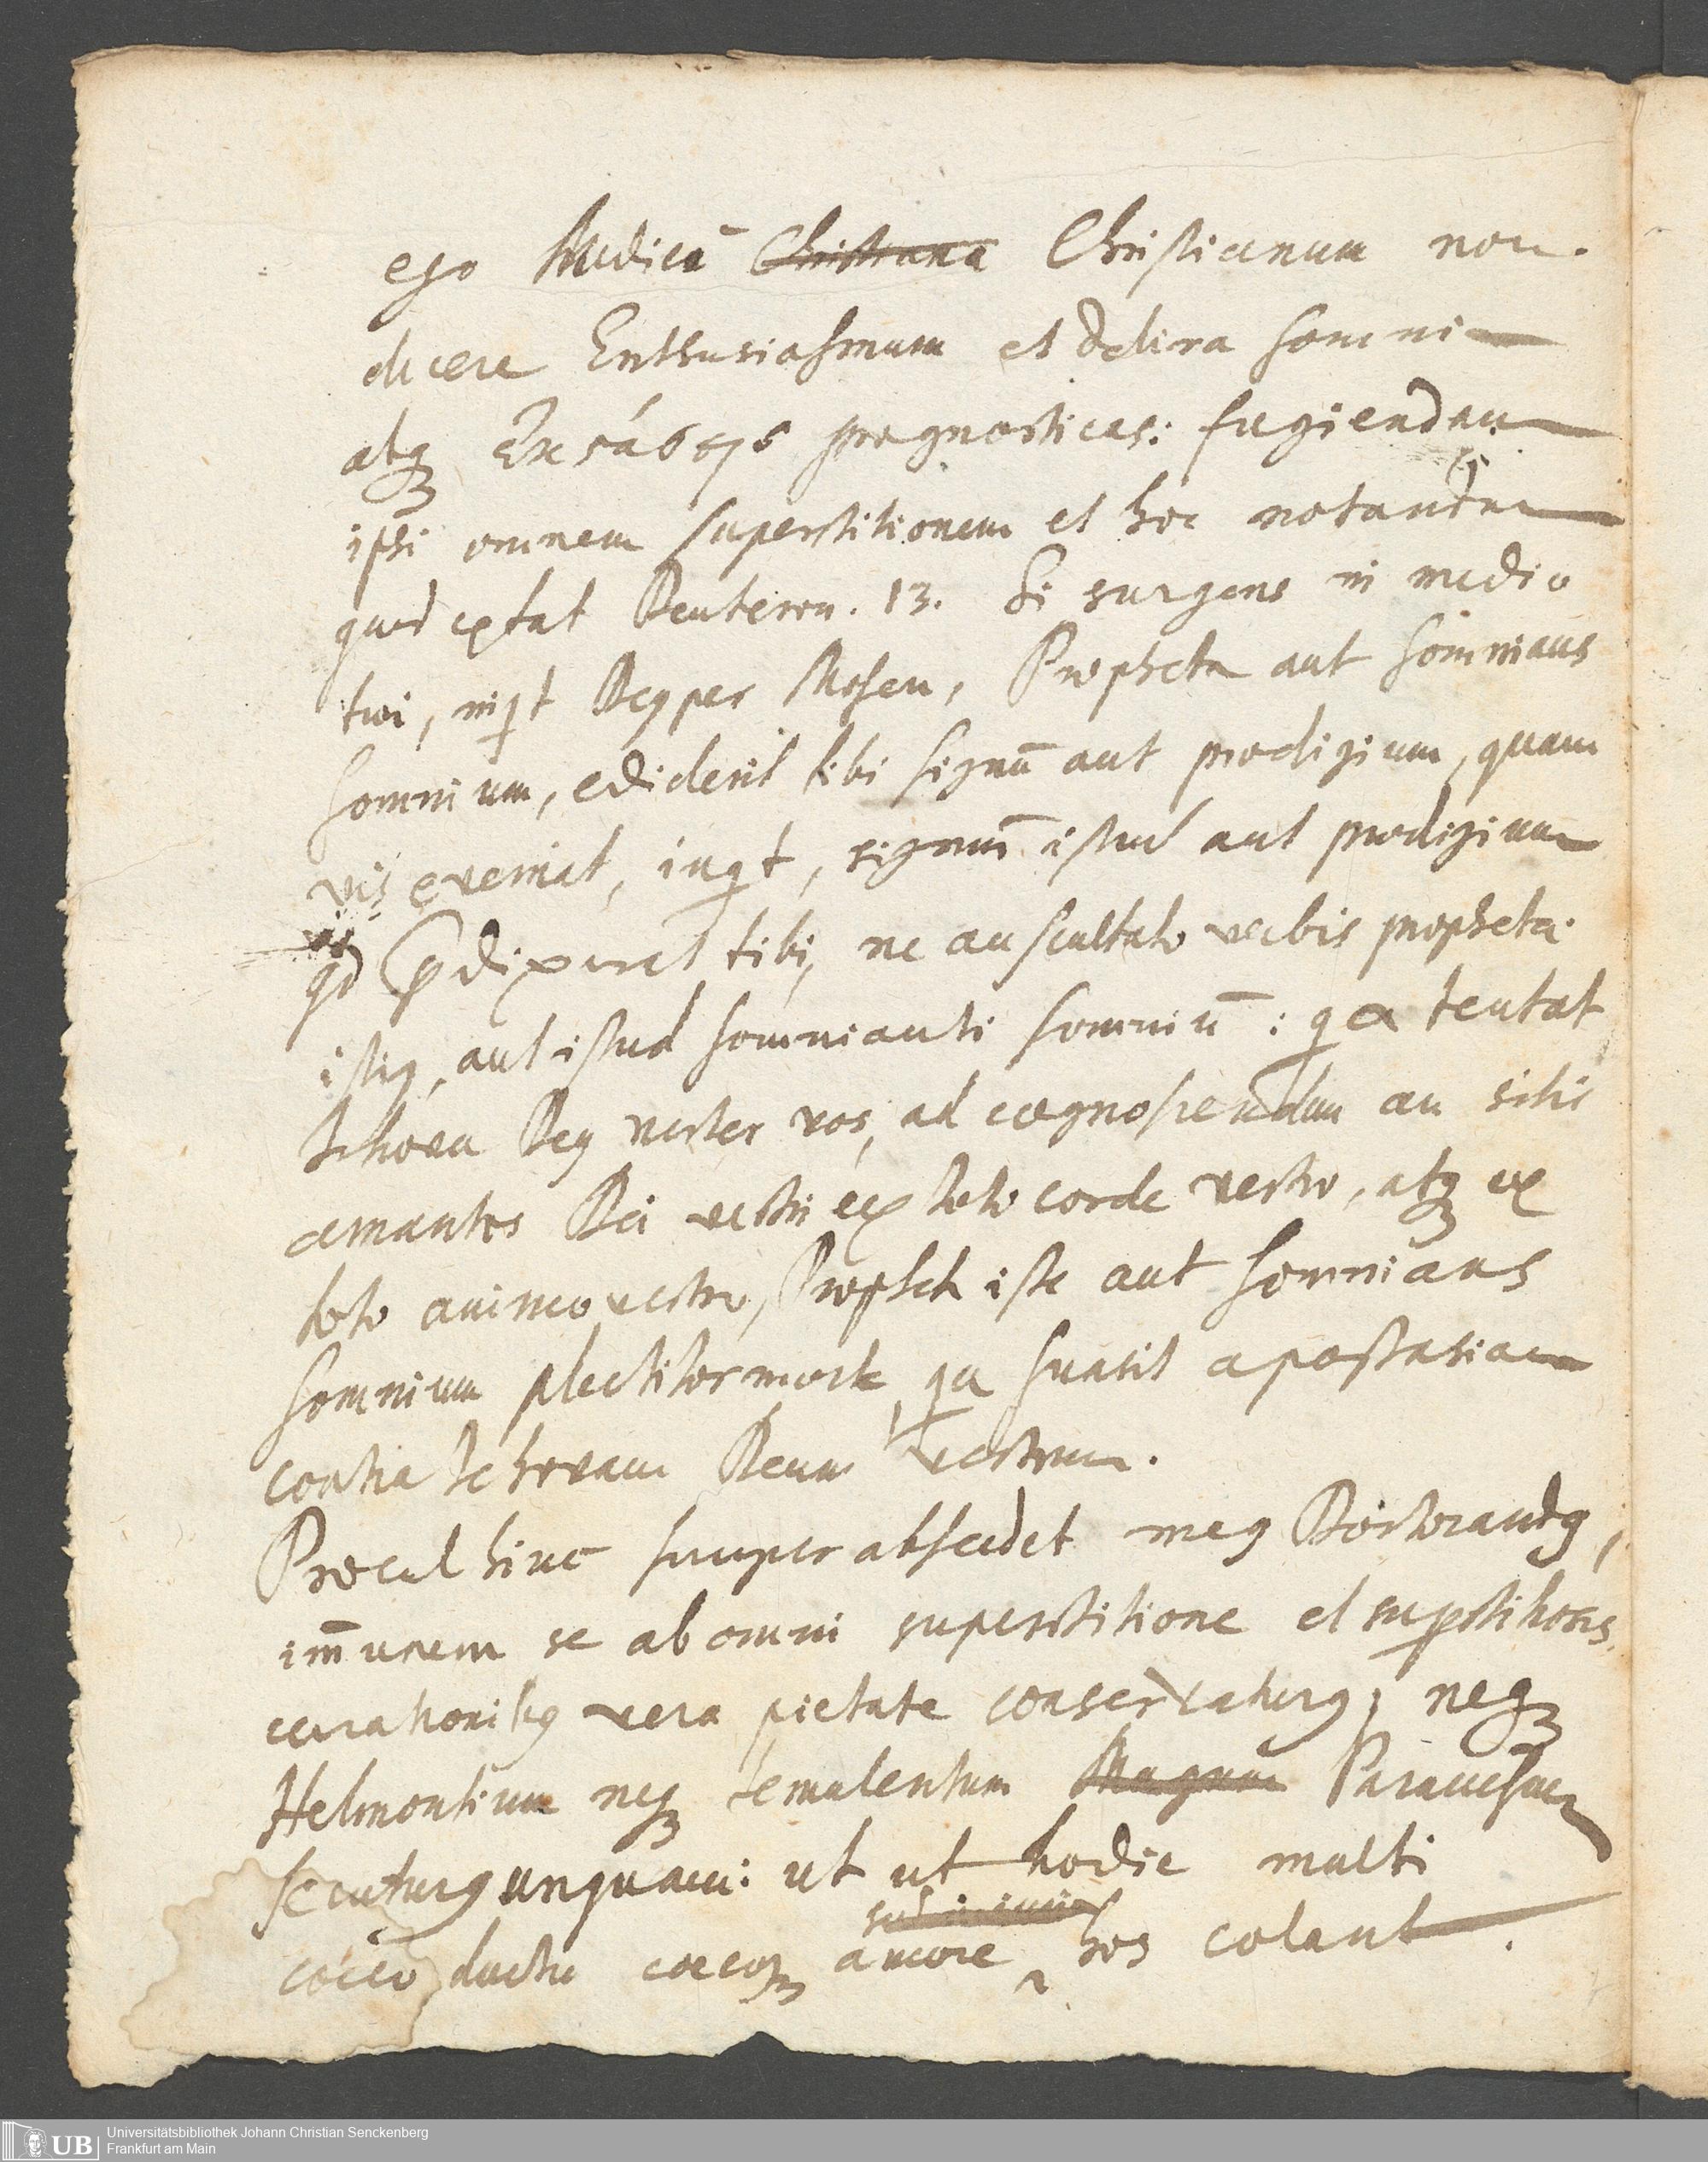 ego Medicū Christiana Christianum non
dicere Enthusiasmum et delira somni
atq Ἐκστάσεις prognosticas: fugiendam
ipsi omnem superstitionem et hoc notandum
quod extat Deuteron. 13. Si surgens in medio
tui, inqt Deus per Mosen, Propheta aut somnians
somnium, ediderit tibi signū aut prodigium, quam
vis eveniat, inqt, signum istud aut prodigium
qd prædixerat tibi, ne auscultato verbis prophetæ
istius, aut istud somnianti somniū: qa tentat
Jehova Deus vester vos, ad cognoscendum an sitis
amantes Dei vestri ex toto corde vestro, atq ex
toto animo vestro, Propheta iste aut somnians
somnium plectitor morte, qa suasit apostasiam
contra Jehovam Deum vestrum.
Procul hinc semper abscedet meus Doctorandus,
immunem se ab omni superstitione et supstitiosis
curationibus vera pietate conservaturus; neq
Helmontium neq temulentum Magnum Paracelsum
secuturus unquam: ut ut hodie multi
coeco ductu coecoq amore hos colant.
Universitätsbibliothek Johann Christian Senckenberg
Frankfurt am Main
UB